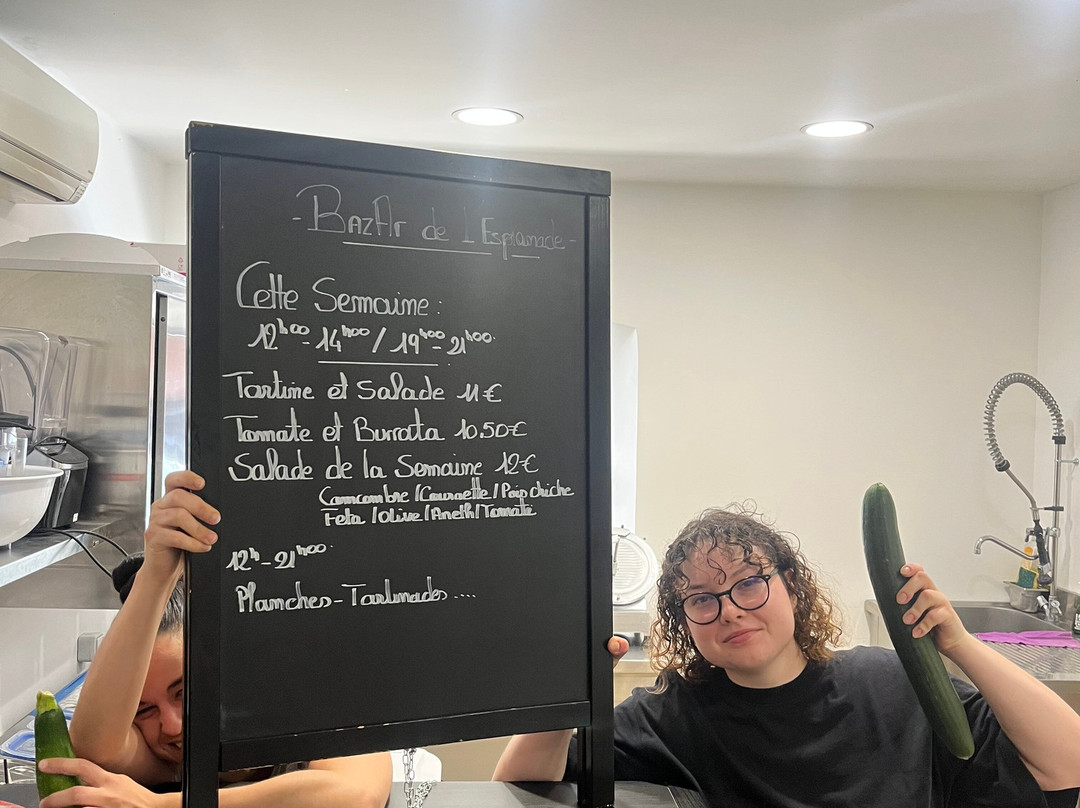 - BAZAr de l'Esplanade -
Cette Semaine :
12h00 - 14h00 / 19h00 - 21h00
Tartine et Salade 11€
Tomate et Burrata 10.50€
Salade de la Semaine 12€
Concombre / Courgette / Pois chiche
Feta / Olive / Aneth / Tomate
12h - 21h00
Planches - Tartinades ....